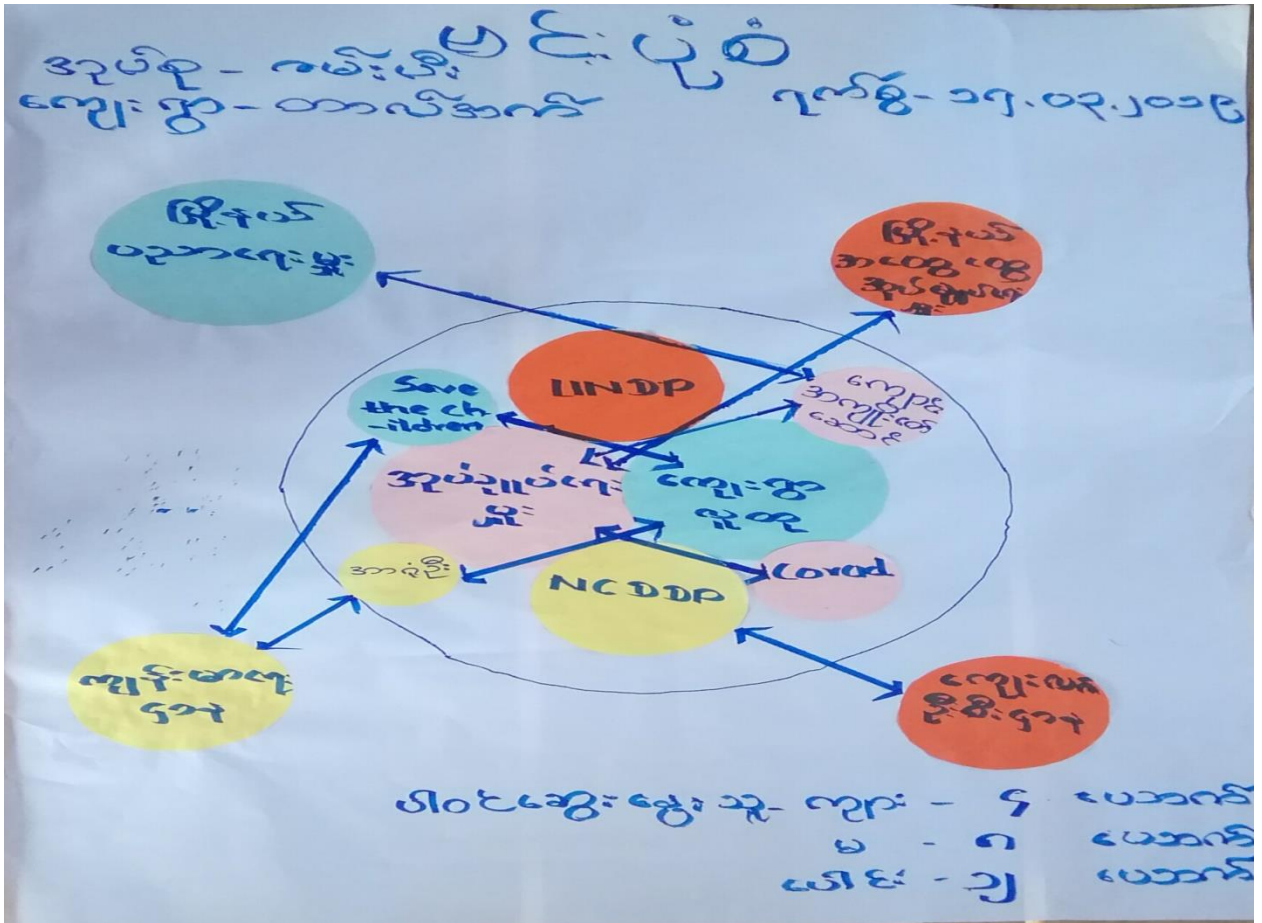 ဗင်းပုံစံ
အုပ်စု - ခမ်းပီး
ကျေးရွာ - တာလ်အက်
ရက်စွဲ - ၁၅.၀၃.၂၀၁၉
မြို့နယ်
ပညာရေးမှူး
မြို့နယ်
အထွေထွေ
အုပ်ချုပ်ရေး
မှူး
LINDP
Save
the ch
-ildren
ကျောင်း
အကျိုးတော်
ဆောင်
အုပ်ချုပ်ရေး
မှူး
ကျေးရွာ
လူထု
အာရုံဦး
NCDDP
Corad
ကျန်းမာရေး
ဌာန
ကျေးလက်
ဦးစီးဌာန
ပါဝင်ဆွေးနွေးသူ - ကျား - ၄ ယောက်
မ - ၈ ယောက်
ပေါင်း - ၁၂ ယောက်